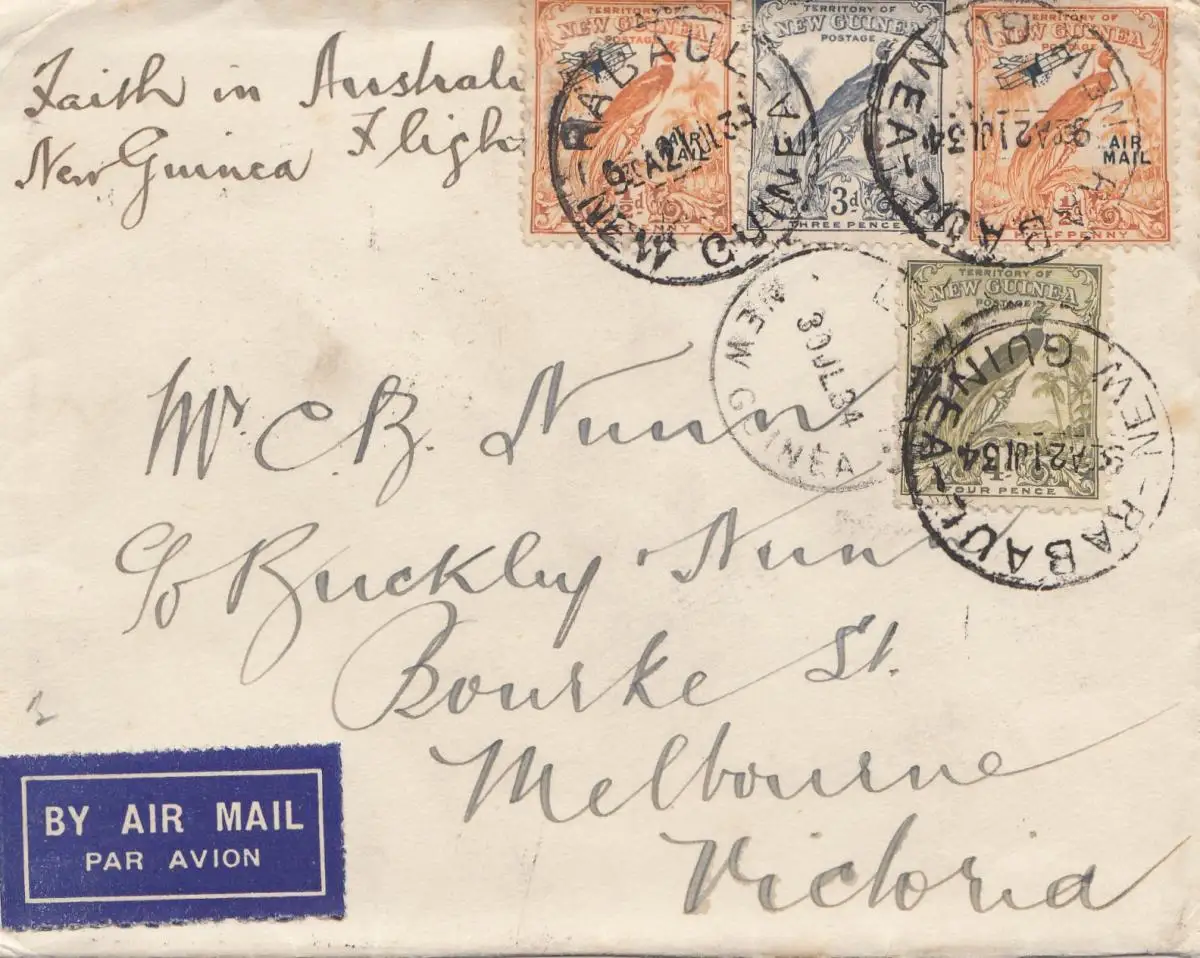 Faith in Australi
New Guinea Flight
TERRITORY OF
NEW GUINEA
POSTAGE
AIR MAIL
½d
TERRITORY OF
NEW GUINEA
POSTAGE
3d
THREE PENCE
TERRITORY OF
NEW GUINEA
AIR MAIL
½d
HALFPENNY
RABAUL
NEW GUINEA
RABAUL
NEW GUINEA
21 JL 34
TERRITORY OF
NEW GUINEA
POSTAGE
FOUR PENCE
RABAUL
NEW GUINEA
21 JL 34
NEW GUINEA
30 JL 34
Mr. C. B. Nunn
c/o Buckley & Nunn
Bourke St.
Melbourne
Victoria
BY AIR MAIL
PAR AVION